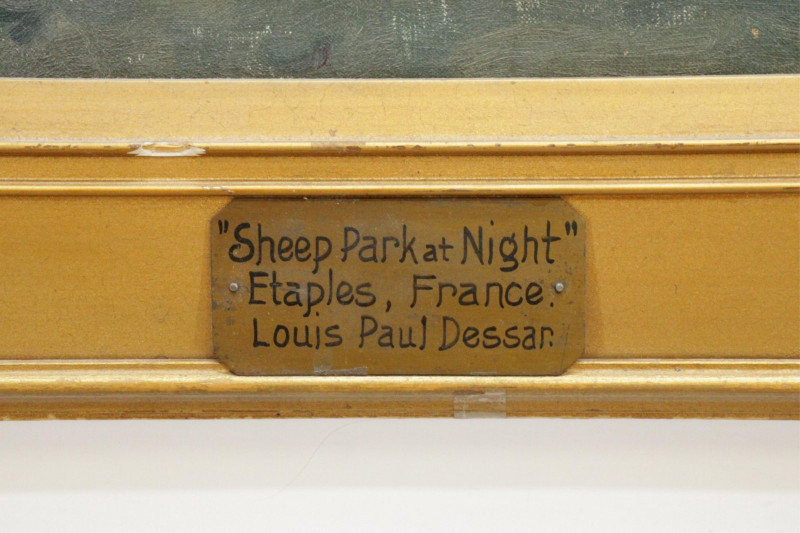 "Sheep Park at Night"
Etaples, France.
Louis Paul Dessar.